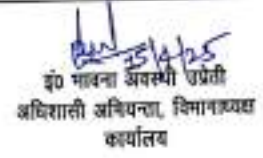 25/4/25
इं0 भावना अवस्थी उप्रेती
अधिशासी अभियन्ता, विभागाध्यक्ष
कार्यालय